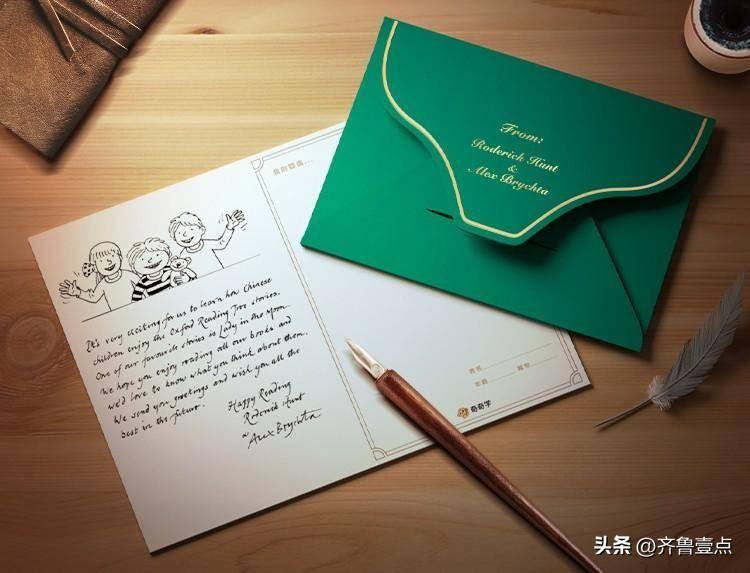 From:
Roderick Hunt
&
Alex Brychta
It's very exciting for us to learn how Chinese
children enjoy the Oxford Reading Tree stories.
One of our favourite stories is Lady in the Moon.
We hope you enjoy reading all our books and
we'd love to know what you think about them.
We send you greetings and wish you all the
best in the future.
Happy Reading
Roderick Hunt
Alex Brychta
姓名
年龄
奇奇学
头条 @齐鲁壹点